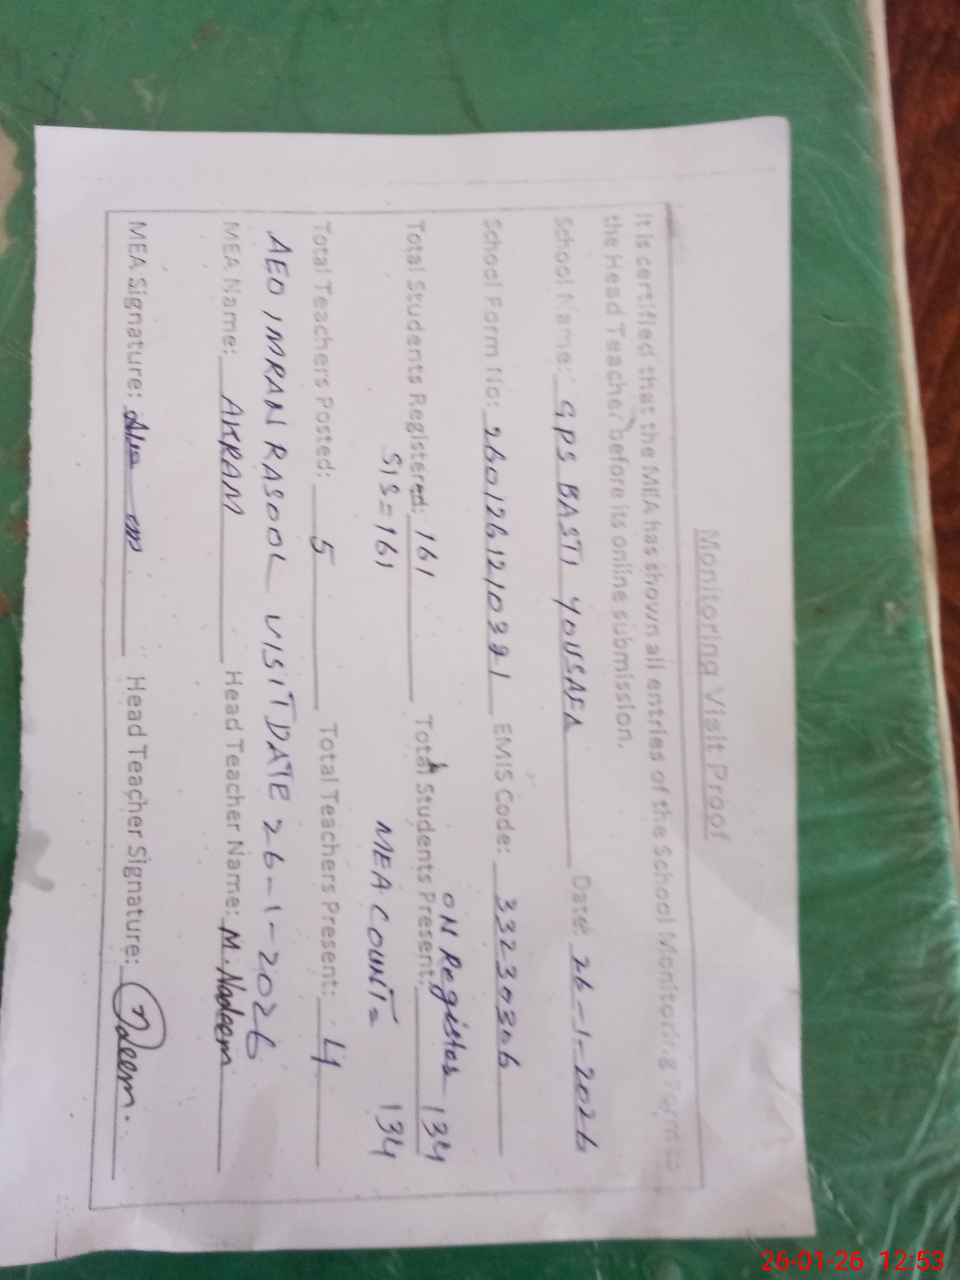 Monitoring Visit Proof
It is certified that the MEA has shown all entries of the School Monitoring Form to
the Head Teacher before its online submission.
School Name: GPS BASTI YOUSAFA Date: 26-1-2026
School Form No: 260126121031 EMIS Code: 33230306
ON Register
Total Students Registered: 161 Total Students Present: 134
SIS = 161 MEA COUNT = 134
Total Teachers Posted: 5 Total Teachers Present: 4
AEO IMRAN RASOOL VISIT DATE 26-1-2026
MEA Name: AKRAM Head Teacher Name: M. Nadeem
MEA Signature: Head Teacher Signature: Nadeem.
26-01-26 12:53